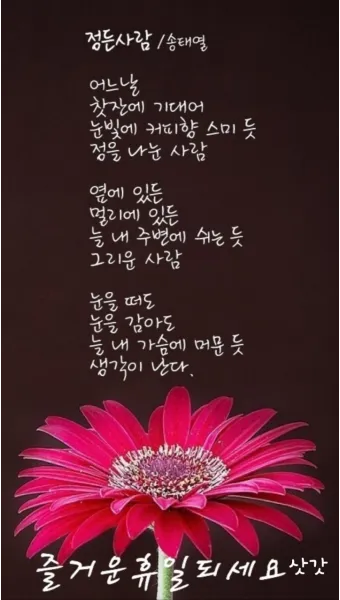 정든사람 / 송태열
어느날
찻잔에 기대어
눈빛에 커피향 스미 듯
정을 나눈 사람
옆에 있든
멀리에 있든
늘 내 주변에 쉬는 듯
그리운 사람
눈을 떠도
눈을 감아도
늘 내 가슴에 머문 듯
생각이 난다.
즐거운휴일되세요 삿갓